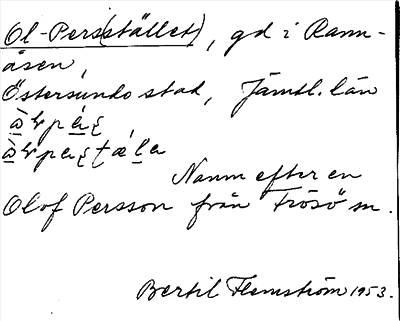 Ol-Pers(stället), gd i Rann-
åsen,
Östersunds stad, Jämtl. län
Namn efter en
Olof Persson från Frösö sn.
Bertil Flemström 1953.